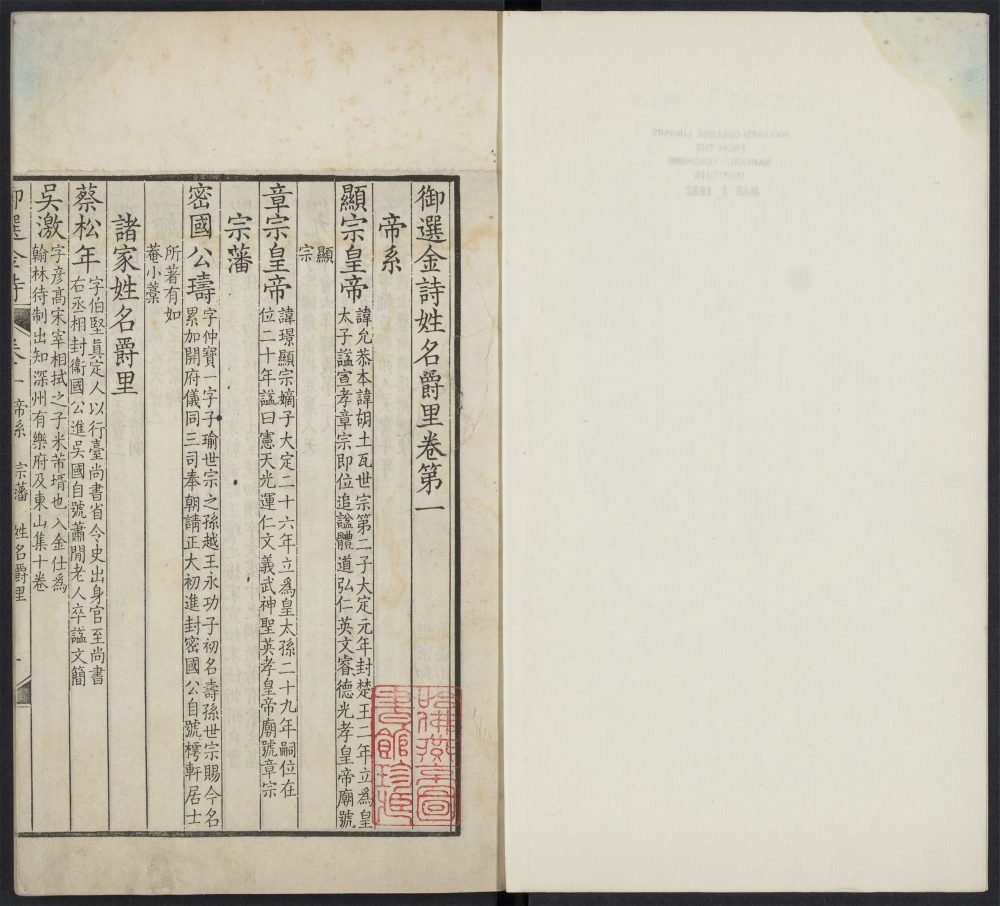 御選金詩姓名爵里卷第一
帝系
顯宗皇帝
諱允恭本諱胡土瓦世宗第二子大定元年封楚王二年立爲皇
太子諡宣孝章宗即位追諡體道弘仁英文睿德光孝皇帝廟號
顯
宗
章宗皇帝
諱璟顯宗嫡子大定二十六年立爲皇太孫二十九年嗣位在
位二十年諡曰憲天光運仁文義武神聖英孝皇帝廟號章宗
宗藩
密國公璹
字仲寶一字子瑜世宗之孫越王永功子初名壽孫世宗賜今名
累加開府儀同三司奉朝請正大初進封密國公自號樗軒居士
所著有如
菴小藁
諸家姓名爵里
蔡松年
字伯堅眞定人以行臺尚書省令史出身官至尚書
右丞相封衞國公進吳國自號蕭閒老人卒諡文簡
吳激
字彥高宋宰相拭之子米芾壻也入金仕爲
翰林待制出知深州有樂府及東山集十卷
御選金詩 卷一 帝系 宗藩 姓名爵里 一
哈佛燕京圖
書館珍藏
HARVARD COLLEGE LIBRARY
FROM THE
HARVARD-YENCHING
INSTITUTE
1982